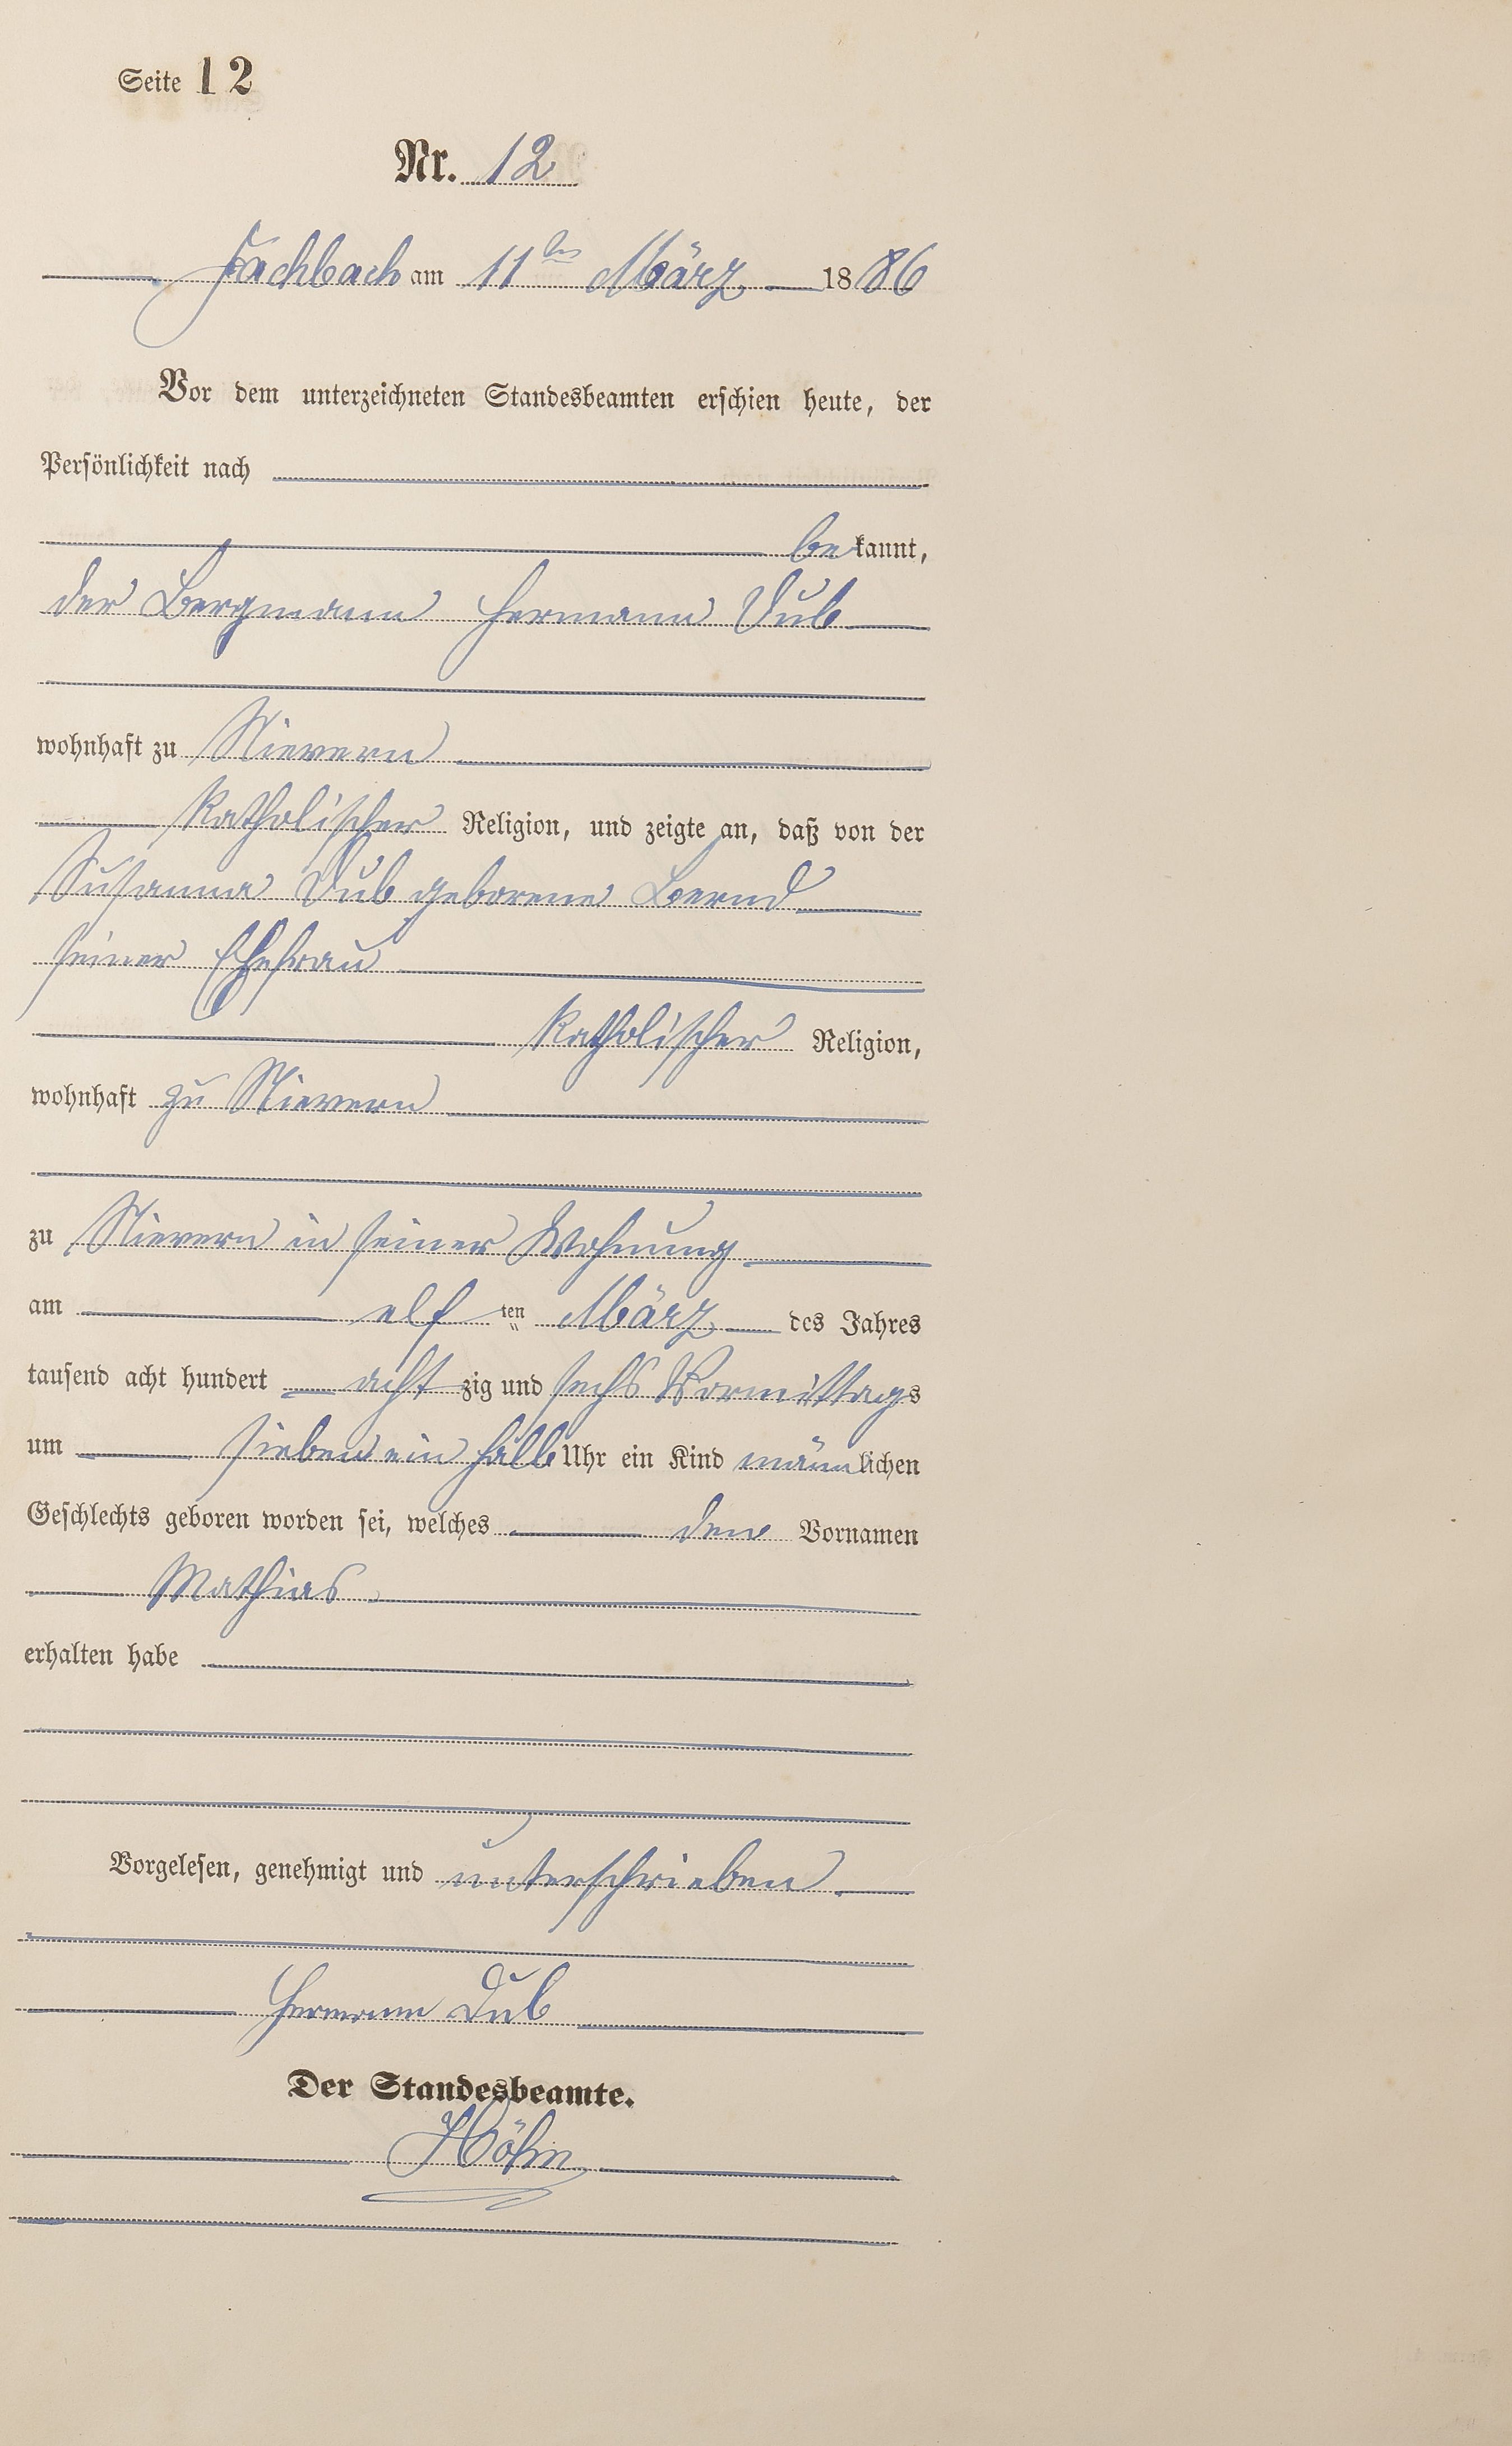 Seite 12
Nr. 12
Fachbach am 11ten März 1886
Vor dem unterzeichneten Standesbeamten erschien heute, der
Persönlichkeit nach
bekannt,
der Bergmann Hermann Dub
wohnhaft zu Nievern
katholischer Religion, und zeigte an, daß von der
Susanna Dub geborene Bernd
seiner Ehefrau
katholischer Religion,
wohnhaft zu Nievern
zu Nievern in seiner Wohnung
am elf ten März des Jahres
tausend acht hundert acht zig und sechs Vormittags
um sieben ein halb Uhr ein Kind männlichen
Geschlechts geboren worden sei, welches den Vornamen
Mathias
erhalten habe
Vorgelesen, genehmigt und unterschrieben
Hermann Dub
Der Standesbeamte.
Höhn